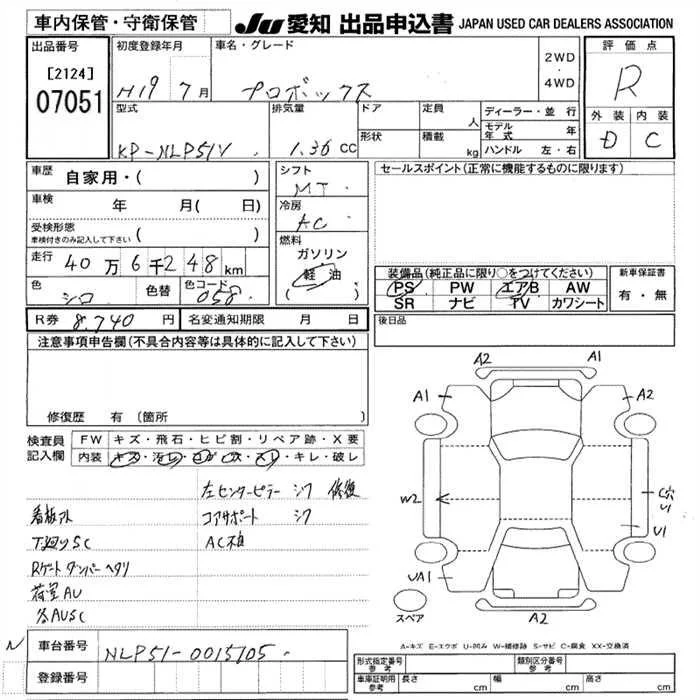 車内保管・守衛保管
JU 愛知 出品申込書 JAPAN USED CAR DEALERS ASSOCIATION
出品番号
[2124]
07051
初度登録年月
H19 7月
車名・グレード
プロボックス
2WD
・
4WD
評価点
R
外装 内装
D C
型式
KP-NLP51V
排気量
1.36 CC
ドア
形状
定員 人
積載 kg
ディーラー・並行
モデル年式 年
ハンドル 左・右
車歴
自家用・( )
車検
年 月( 日)
受検形態
車検付きのみ記入して下さい ( )
走行
40万6千248km
色
シロ
色替
色コード
058
シフト
MT
冷房
AC
燃料
ガソリン
軽油
( )
セールスポイント(正常に機能するものに限ります)
装備品(純正品に限り○をつけてください)
PS PW エアB AW
SR ナビ TV カワシート
新車保証書
有・無
R券 8,740円 名変通知期限 月 日
後日品
注意事項申告欄(不具合内容等は具体的に記入して下さい)
修復歴 有(箇所 )
検査員記入欄
FW キズ・飛石・ヒビ割・リペア跡・X要
内装 キズ・汚レ・コゲ・穴・スレ・キレ・破レ
左センターピラー シワ 修復
看板アト コアサポート シワ
下廻りSC AC不良
Rゲートダンパーヘタリ
荷室AU
各AUSC
A2 A1
A1 A2
W2
C穴
U1
U1
UA1
A2
スペア
A-キズ E-エクボ U-凹み W-補修跡 S-サビ C-腐食 XX-交換済
N
車台番号 NLP51-0015105
登録番号
形式指定番号 参考
類別区分番号 参考
車庫証明用 参考
長さ cm 幅 cm 高さ cm